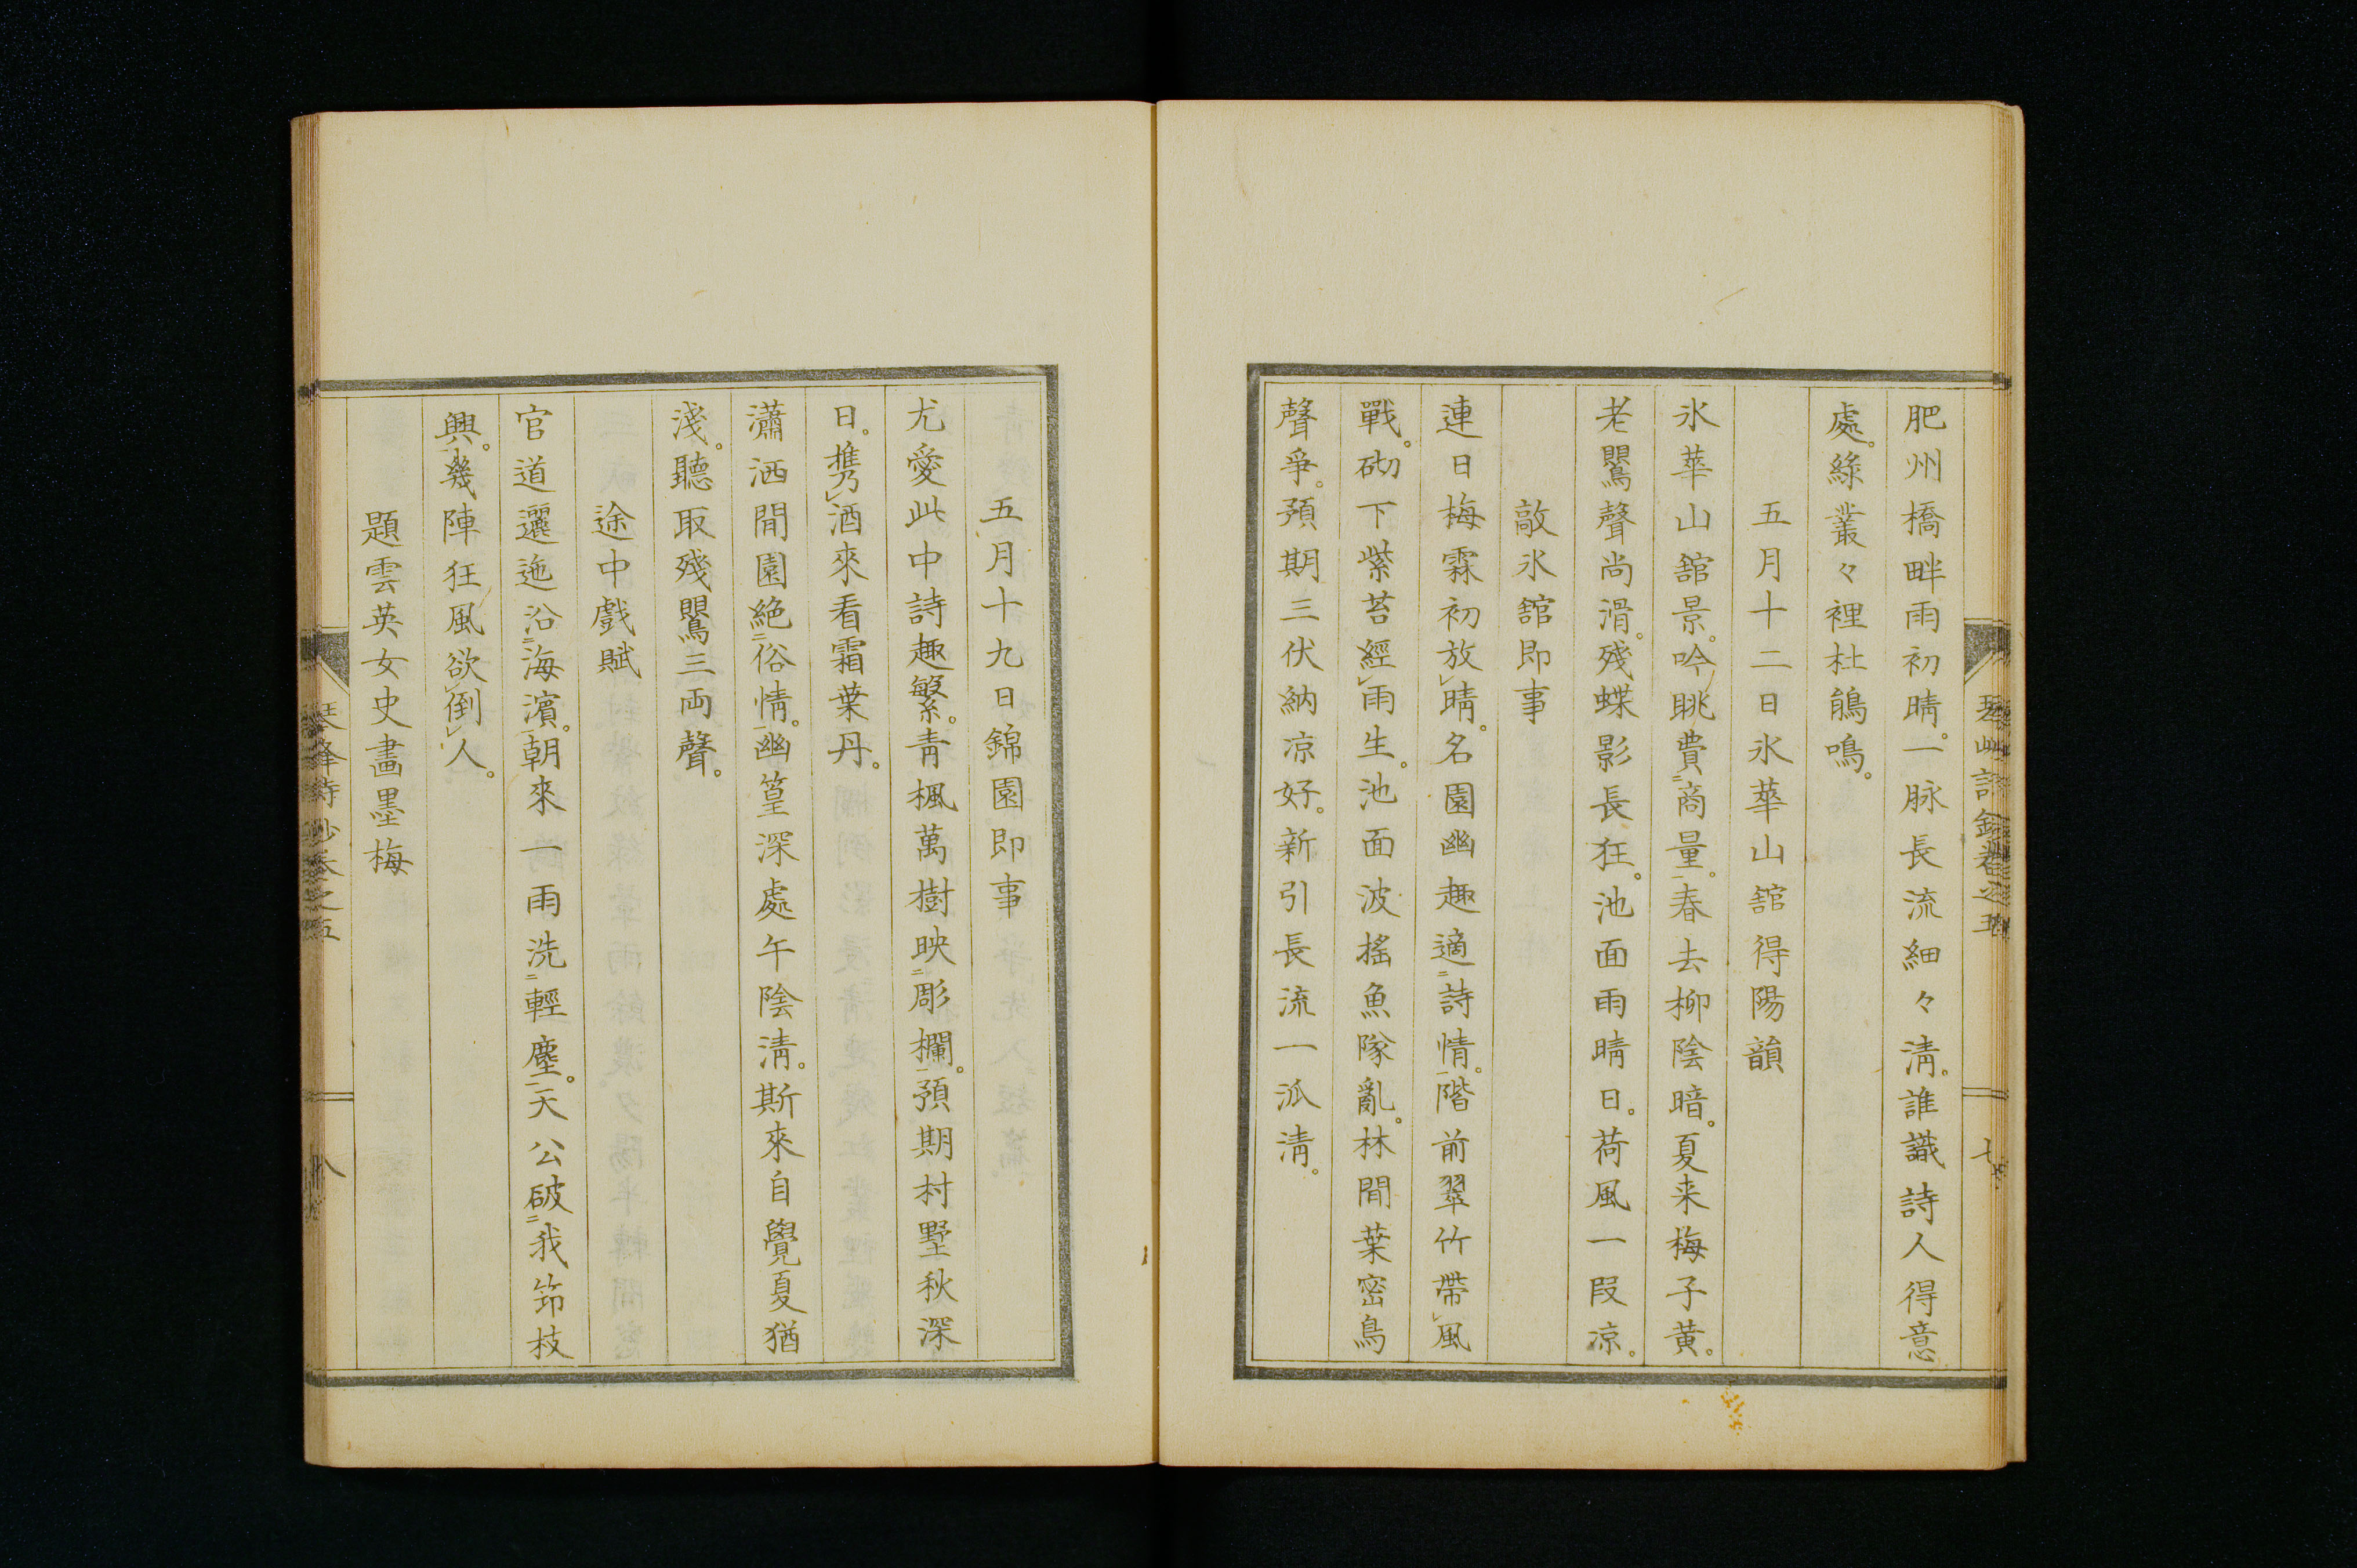 肥州橋畔雨初晴。一脉長流細々淸。誰識詩人得意
處。綠叢々裡杜鵑鳴。
五月十二日氷華山舘得陽韻
氷華山舘景。吟眺費商量。春去柳陰暗。夏来梅子黄。
老鸎聲尚滑。殘蝶影長狂。池面雨晴日。荷風一段凉。
敲氷舘即事
連日梅霖初放晴。名園幽趣適詩情。階前翠竹帶風
戰。砌下紫苔經雨生。池面波搖魚隊亂。林間葉密鳥
聲爭。預期三伏納凉好。新引長流一泒淸。
五月十九日錦園即事
尤愛此中詩趣繁。靑楓萬樹映彫欄。預期村墅秋深
日。携乃酒來看霜葉丹。
瀟洒閒園絶俗情。幽篁深處午陰淸。斯來自覺夏猶
淺。聽取殘鸎三両聲。
途中戲賦
官道邐迤沿海濱。朝來一雨洗輕塵。天公破我笻枝
興。幾陣狂風欲倒人。
題雲英女史畫墨梅
琴峰詩鈔卷之五
八